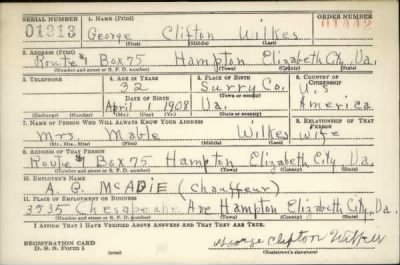 SERIAL NUMBER 1. NAME (Print) ORDER NUMBER
01313 George Clifton Wilkes
(First) (Middle) (Last)
2. ADDRESS (Print)
Route 1 Box 75 Hampton Elizabeth City, Va.
(Number and street or R. F. D. number) (Town) (County) (State)
3. TELEPHONE 4. AGE IN YEARS 5. PLACE OF BIRTH 6. COUNTRY OF CITIZENSHIP
32 Surry Co. U.S
DATE OF BIRTH (Town or county)
April 1 1908 Va. America
(Mo.) (Day) (Yr.) (State or country)
7. NAME OF PERSON WHO WILL ALWAYS KNOW YOUR ADDRESS 8. RELATIONSHIP OF THAT PERSON
Mrs Mable Wilkes Wife
(Mr., Mrs., Miss) (First) (Middle) (Last)
9. ADDRESS OF THAT PERSON
Route 1 Box 75 Hampton Elizabeth City Va.
(Number and street or R. F. D. number) (Town) (County) (State)
10. EMPLOYER'S NAME
A. Q. McAdie (Chauffeur)
11. PLACE OF EMPLOYMENT OR BUSINESS
3535 Chesapeake Ave Hampton Elizabeth City, Va.
(Number and street or R. F. D. number) (Town) (County) (State)
I AFFIRM THAT I HAVE VERIFIED ABOVE ANSWERS AND THAT THEY ARE TRUE.
REGISTRATION CARD
D. S. S. Form 1
George Clifton Wilkes
(Registrant's signature)